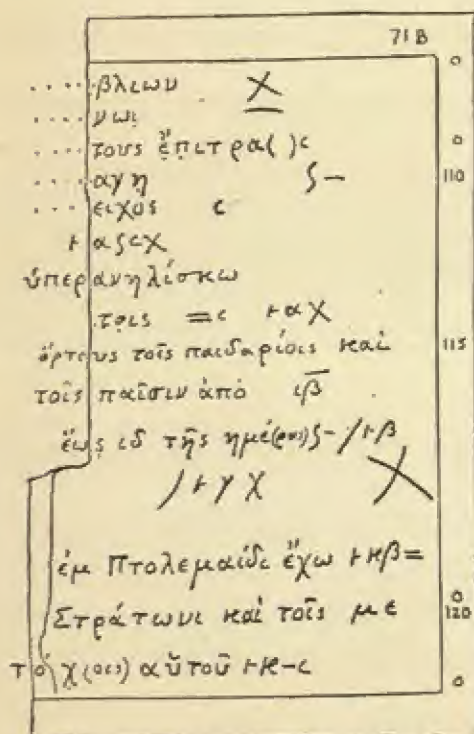 71 B
. . . . βλιων χ
. . . . νωι
. . . . τους ἔπιτρα( )ϲ
. . . . αγη ϛ– 110
. . . . ειχος ϲ
⊦ αϛϲχ
ὑπερανηλίσκω
τρις =ϲ ⊦αχ
ὄρτευς τοῖς παιδαρίοις καὶ 115
τοῖς παῖσιν ἀπὸ ιβ̅
ἕως ιδ τῆς ημέ(ρας) ϛ– /⊦β
/⊦γ χ
ἐμ Πτολεμαίδι ἔχω ⊦κβ=
Στράτωνι καὶ τοῖς με 120
τόχ(οις) αὐτοῦ ⊦κ–ϲ